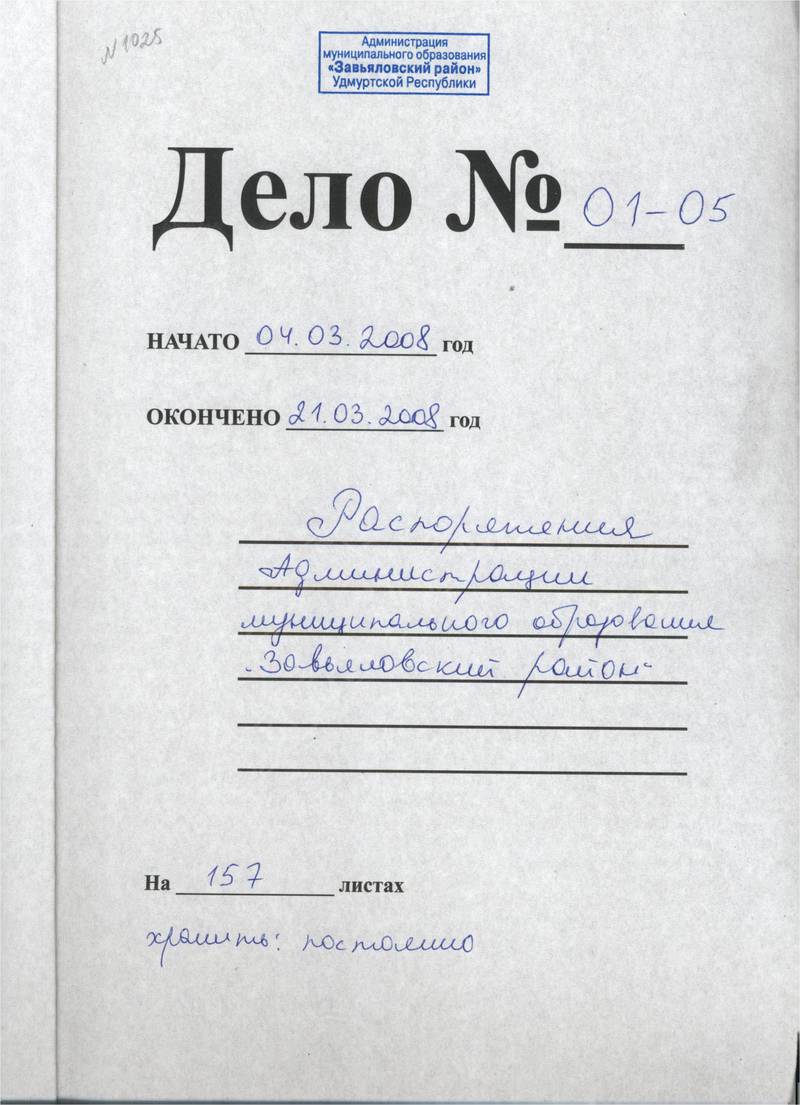 N 1025
Администрация
муниципального образования
«Завьяловский район»
Удмуртской Республики
Дело № 01-05
НАЧАТО 04.03.2008 год
ОКОНЧЕНО 21.03.2008 год
Распоряжения
Администрации
муниципального образования
"Завьяловский район"
На 157 листах
хранить: постоянно